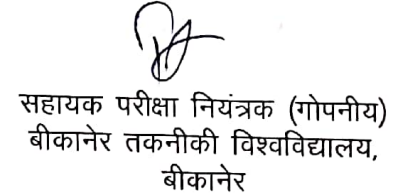 सहायक परीक्षा नियंत्रक (गोपनीय)
बीकानेर तकनीकी विश्वविद्यालय,
बीकानेर